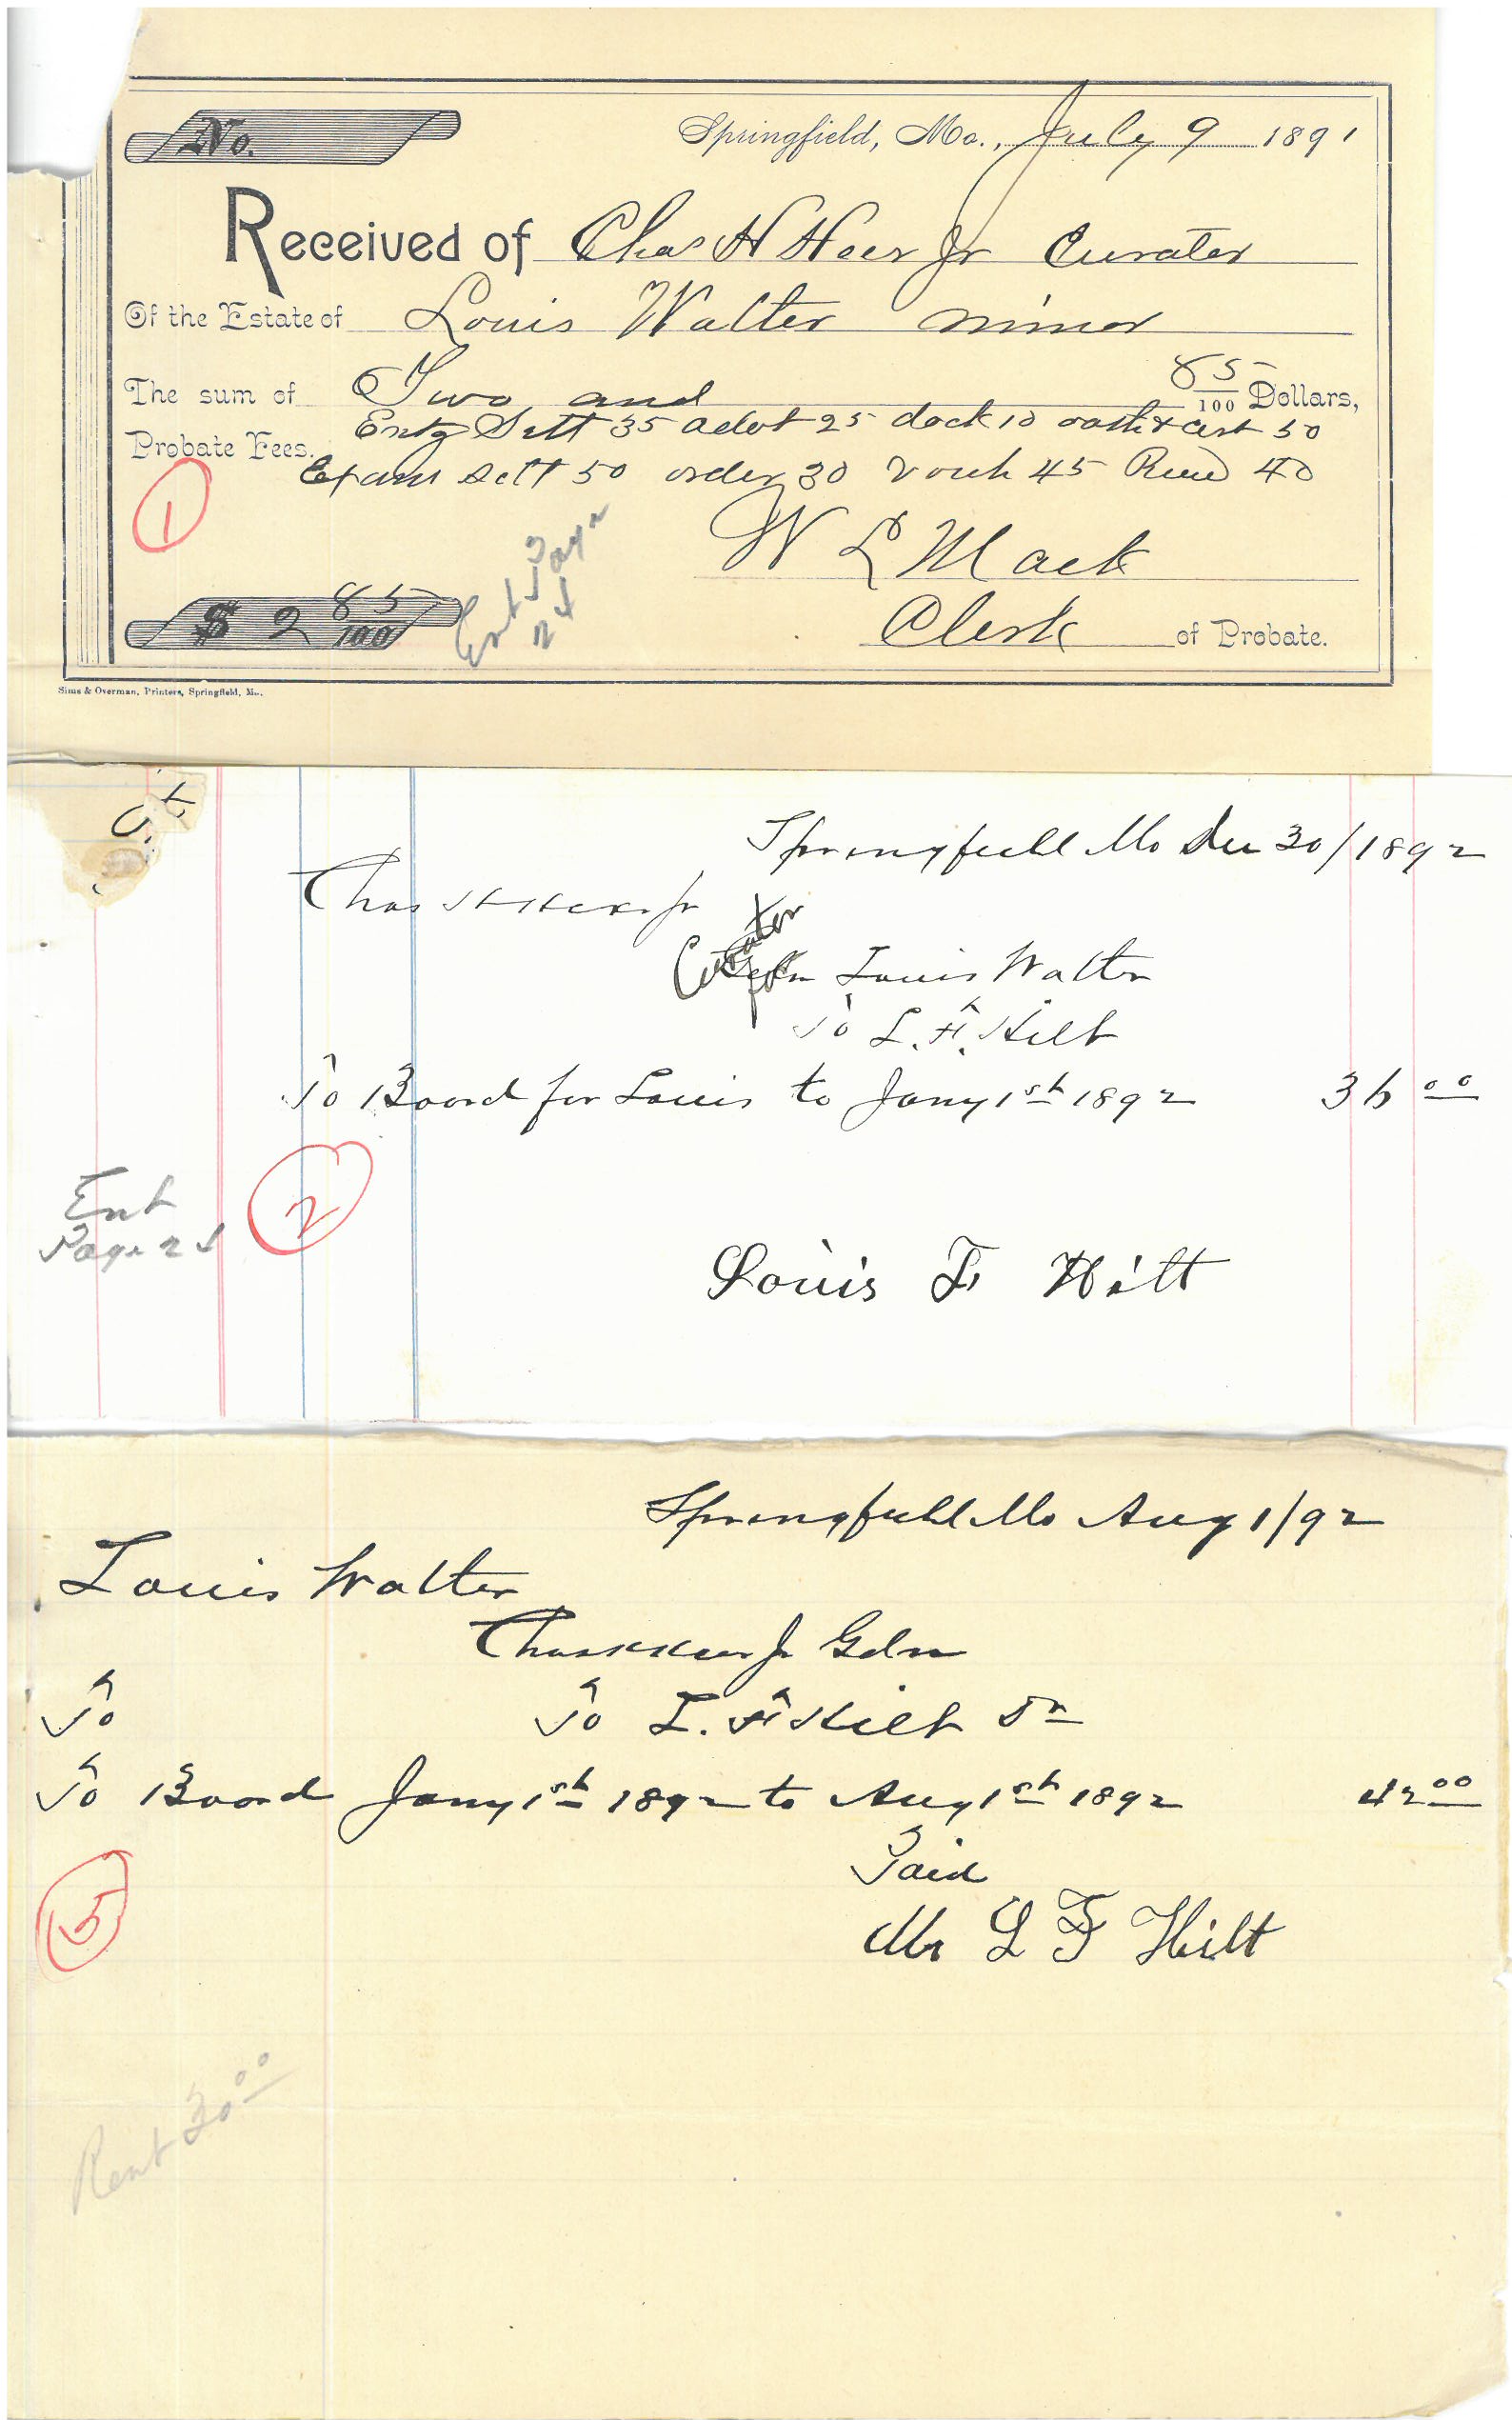 No.
Springfield, Mo., July 9 1891
Received of Chas H Heer Jr Curator
Of the Estate of Louis Walter minor
The sum of Two and 85/100 Dollars,
Probate Fees. Entg Sett 35 advt 25 dock 10 oath & cert 50
Exam Sett 50 order 30 Vouh 45 40
1
W L Mack
Clerk of Probate.
$ 2 85/100
Ent Page 24
Sims & Overman, Printers, Springfield, Mo.
Springfield Mo Dec 30/1892
Chas H Heer Jr
Curator for Louis Walter
To L. F. Hilt
To Board for Louis to Jany 1st 1892 36 00
Ent
Page 24
2
Louis F Hilt
Springfield Mo Aug 1/92
Louis Walter
Chas H Heer Jr Gdn
To To L. F. Hilt Dr
To Board Jany 1st 1892 to Aug 1st 1892 42 00
Paid
5
Mr L F Hilt
Rent 30 00